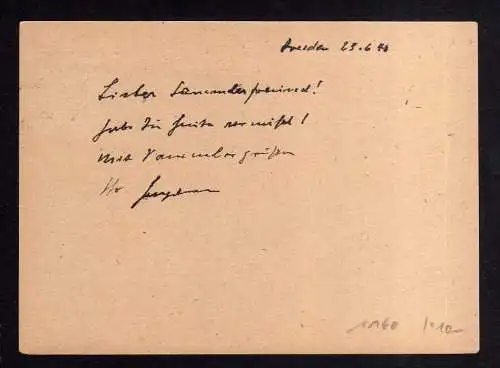 Dresden 25.6.46
Lieber Sammlerfreund!
habe Dich heute vermißt!
Mit Sammlergrüßen
Ihr
1160 1.10